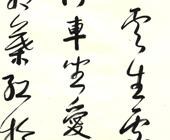 雲生處
車坐愛
葉紅於